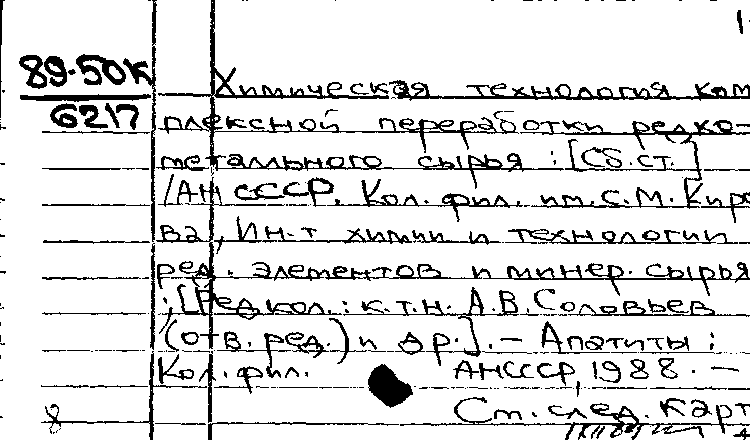 89-50К
6217
Химическая технология ком
плексной переработки редко-
метального сырья : [Сб. ст.]
/АН СССР. Кол. фил. им. С. М. Киро
ва, Ин-т химии и технологии
ред. элементов и минер. сырья
; [Редкол.: к.т.н. А.В. Соловьев
(отв. ред.) и др.]. – Апатиты :
Кол. фил. АН СССР, 1988. –
См. след. карт
8